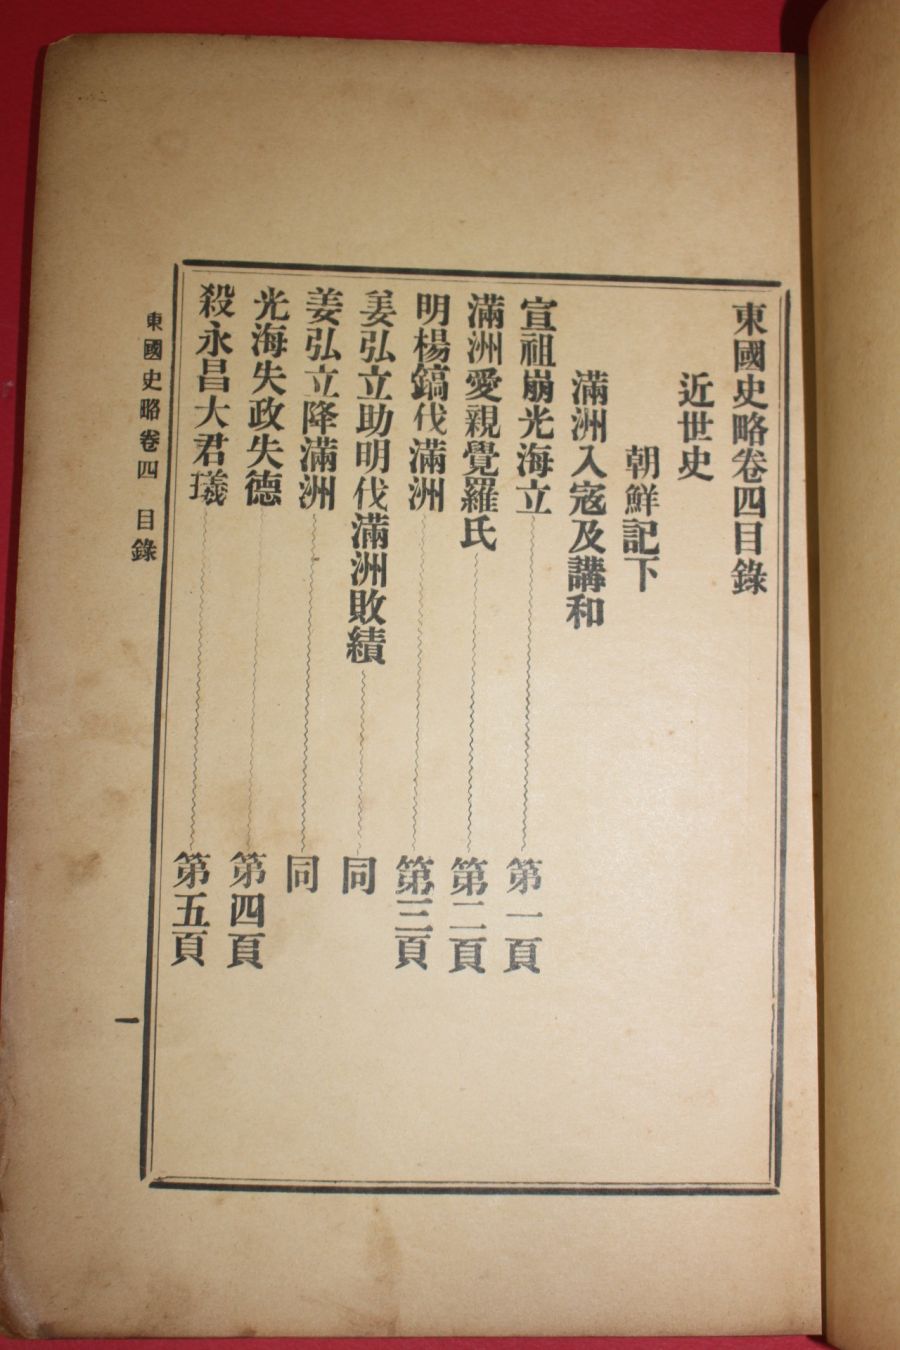 東國史略卷四目錄
近世史
朝鮮記下
滿洲入寇及講和
宣祖崩光海立 第一頁
滿洲愛親覺羅氏 第二頁
明楊鎬伐滿洲 第三頁
姜弘立助明伐滿洲敗績 同
姜弘立降滿洲 同
光海失政失德 第四頁
殺永昌大君㼁 第五頁
東國史略卷四 目錄 一